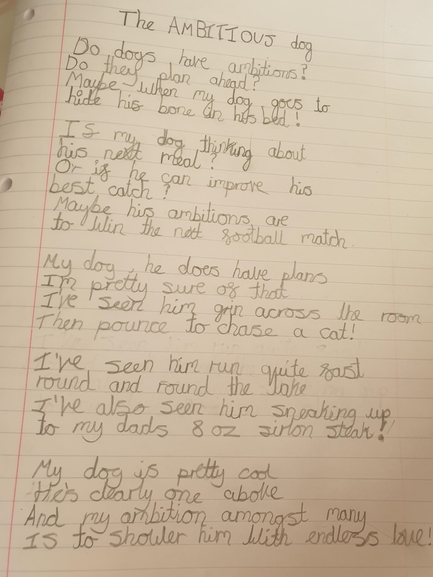 The AMBITIOUS dog
Do dogs have ambitions?
Do they plan ahead?
Maybe when my dog goes to
hide his bone in his bed!
Is my dog thinking about
his next meal?
Or if he can improve his
best catch?
Maybe his ambitions are
to win the next football match
My dog, he does have plans
I'm pretty sure of that
I've seen him grin across the room
Then pounce to chase a cat!
I've seen him run quite fast
round and round the lake
I've also seen him sneaking up
to my dads 8 oz sirlon steak!
My dog is pretty cool
He's clearly one above
And my ambition amongst many
IS to shower him with endless love!